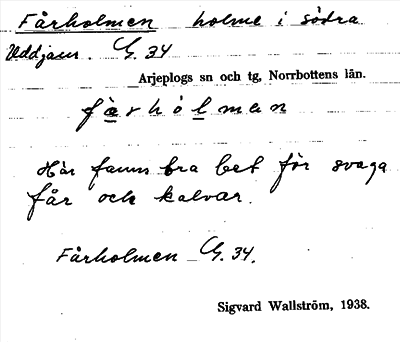 Fårholmen holme i södra
Uddjaur. G. 34
Arjeplogs sn och tg, Norrbottens län.
fàrhòlman
Här fanns bra bet för svaga
får och kalvar.
Fårholmen G. 34.
Sigvard Wallström, 1938.